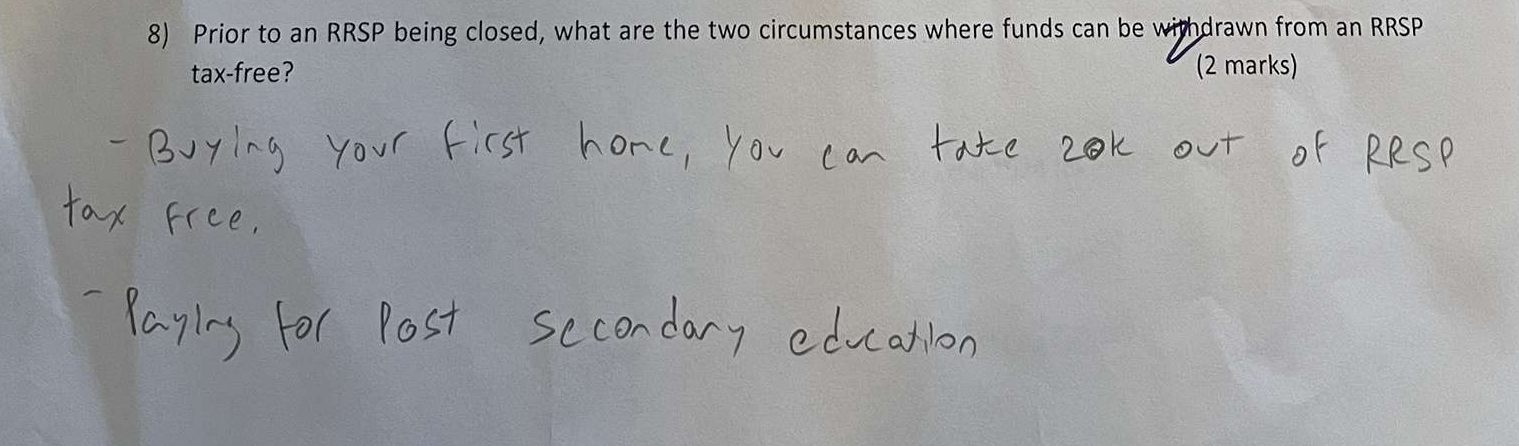 8) Prior to an RRSP being closed, what are the two circumstances where funds can be withdrawn from an RRSP
tax-free? (2 marks)
- Buying your first home, you can take 20k out of RRSP
tax free.
- Paying for Post secondary education